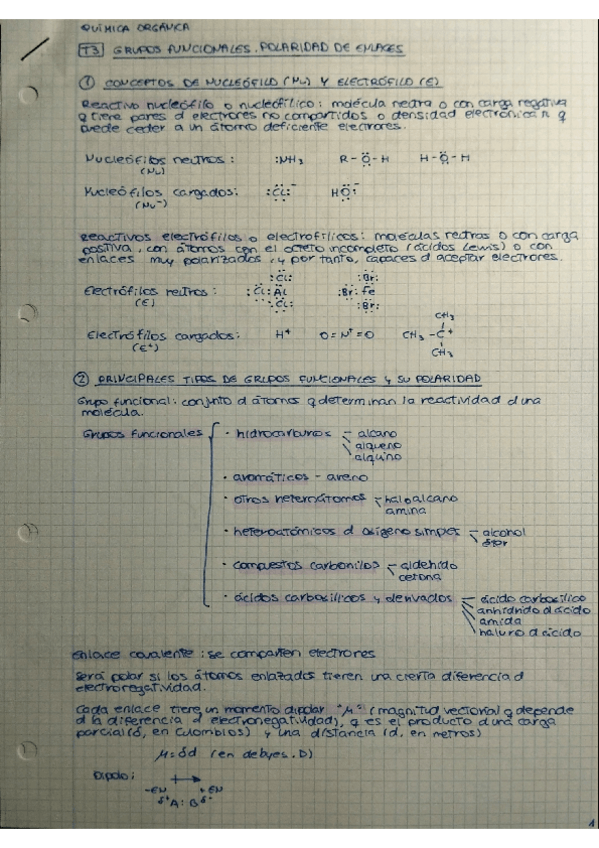 QUÍMICA ORGÁNICA
T3 GRUPOS FUNCIONALES. POLARIDAD DE ENLACES
① CONCEPTOS DE NUCLEÓFILO (Nu) Y ELECTRÓFILO (E)
Reactivo nucleófilo o nucleofílico: molécula neutra o con carga negativa
q tiene pares d electrones no compartidos o densidad electrónica π q
puede ceder a un átomo deficiente electrones.
Nucleófilos neutros: :NH₃ R-O-H H-O-H
(Nu)
Nucleófilos cargados: :Cl:⁻ HO:⁻
(Nu⁻)
Reactivos electrófilos o electrofílicos: moléculas neutras o con carga
positiva, con átomos con el octeto incompleto (ácidos Lewis) o con
enlaces muy polarizados, y por tanto, capaces d aceptar electrones.
:Cl: :Br:
Electrófilos neutros: :Cl:Al :Br:Fe
(E) :Cl: :Br:
CH₃
Electrófilos cargados: H⁺ O=N⁺=O CH₃-C⁺
(E⁺) CH₃
② PRINCIPALES TIPOS DE GRUPOS FUNCIONALES Y SU POLARIDAD
Grupo funcional: conjunto d átomos q determinan la reactividad d una
molécula.
Grupos funcionales · hidrocarburos - alcano
alqueno
alquino
· aromáticos - areno
· otros heteroátomos - haloalcano
amina
· heteroatómicos d oxígeno simples - alcohol
éter
· compuestos carbonilos - aldehído
cetona
· ácidos carboxílicos y derivados - ácido carboxílico
anhídrido d ácido
amida
haluro d ácido
Enlace covalente: se comparten electrones
Será polar si los átomos enlazados tienen una cierta diferencia d
electronegatividad.
Cada enlace tiene un momento dipolar "μ" (magnitud vectorial q depende
d la diferencia d electronegatividad), q es el producto d una carga
parcial (δ, en Culombios) y una distancia (d, en metros)
μ=δd (en debyes. D)
Dipolo:
-EN +EN
δ⁺A:Bδ⁻
1